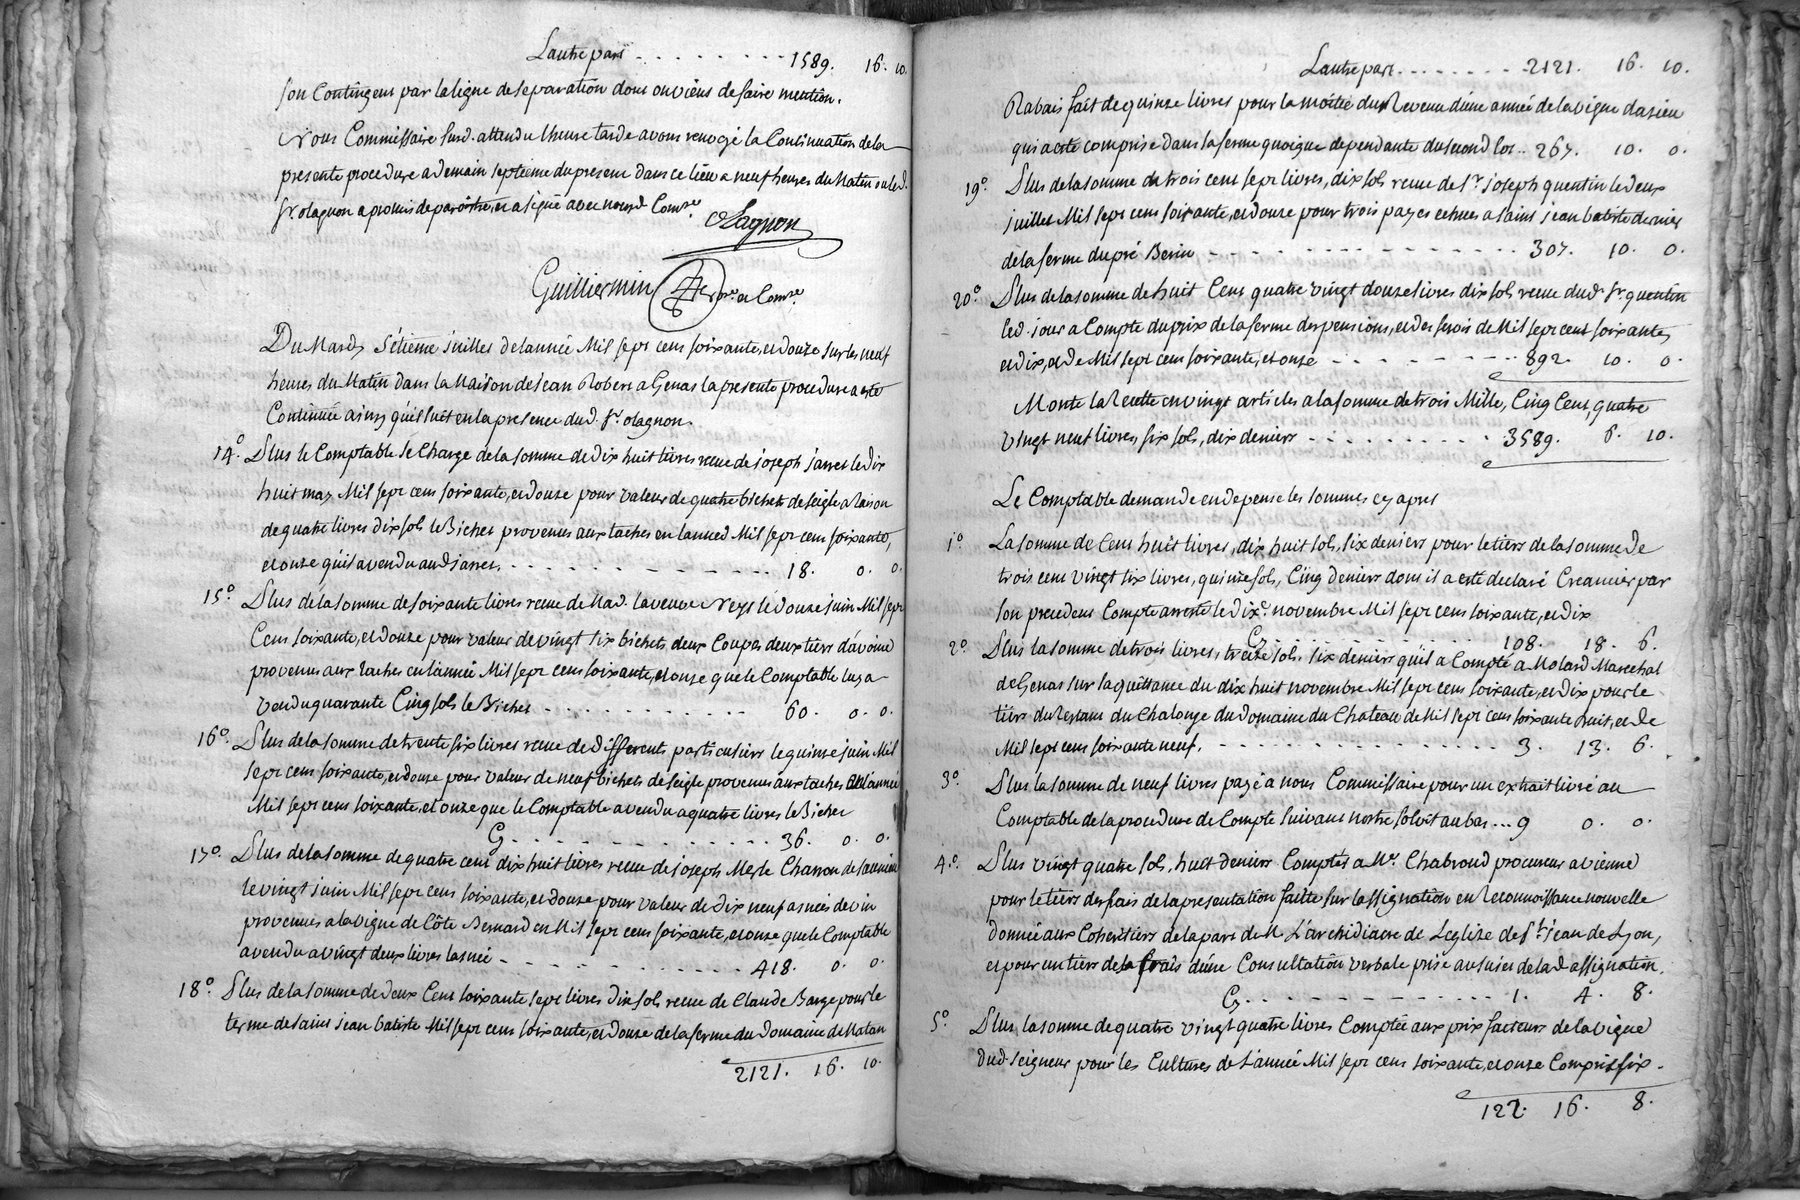 Lautre part . . . . . . . . 1589. 16. 10.
son Contingent par la ligne de separation dont on viens de faire mention.
Nous Commissaire susd. attendu lheure tarde avons renvoyé la Continuation dela
presente procedure a demain septieme du present dans ce lieu a neuf heures du Matin ou led.
Sr. olagnon a promis de paroitre, et a signé avec nousd. Comre.
Olagnon
Guilliermin et Comre.
Du Mardy Sétieme juillet de lannée Mil sept cens soixante, et douze sur les neuf
heures du Matin dans la Maison de jean Robert a Genas la presente procedure a esté
Continuée ainsy quil suit en la presence dud. Sr. olagnon.
14º. Plus le Comptable se Charge de la somme de dix huit livres receue de joseph jarret le dix
huit may Mil sept cens soixante, et douze pour valeur de quatre bichets de seigle a raison
de quatre livres dix sols le Bichet provenus aux taches en lannée Mil sept cens soixante,
et onze quil a vendu aud. jarret. . . . . . . . . . . . 18. 0. 0.
15º. Plus de la somme de soixante livres receue de Mad. la veuve Reys le douze juin Mil sept
Cens soixante, et douze pour valeur de vingt six bichets deux Coupes deux tiers d'avoine
provenus aux taches en lannée Mil sept cens soixante, et onze que le Comptable luy a
vendu quarante Cinq sols le Bichet . . . . . . . . . . . 60. 0. 0.
16º. Plus de la somme de trente six livres receue de differents particuliers le quinze juin Mil
sept cens soixante, et douze pour valeur de neuf bichets de seigle provenus aux taches en lannée
Mil sept cens soixante, et onze que le Comptable a vendu a quatre livres le Bichet
Cy . . . . . . . . . . . . . . 36. 0. 0.
17º. Plus de la somme de quatre cent dix huit livres receue de joseph Merle Charron de
le vingt juin Mil sept cens soixante, et douze pour valeur de dix neuf asnées de vin
provenues a la vigne de Côte Bernard en Mil sept cens soixante, et onze que le Comptable
a vendu a vingt deux livres lasnée . . . . . . . . . . . 418. 0. 0.
18º. Plus de la somme de deux Cens soixante sept livres dix sols receue de Claude Barge pour le
terme de saint jean batiste Mil sept cens soixante, et douze de la ferme du domaine de Matan
2121. 16. 10.
Lautre part . . . . . . . 2121. 16. 10.
Rabais fait de quinze livres pour la moitié du Revenu d'une année de la vigne dasieu
qui a esté comprise dans la ferme quoique dependante du second lot .. 267. 10. 0.
19º. Plus de la somme de trois cent sept livres, dix sols receue de Sr. joseph quentin le deux
juillet Mil sept cens soixante, et douze pour trois payes echues a saint jean batiste dernier
de la ferme du pré Berin . . . . . . . . . . . . . 307. 10. 0.
20º. Plus de la somme de huit Cens quatre vingt douze livres dix sols receue dud. Sr. quentin
led. jour a Compte du prix de la ferme des pensions, et des servis de Mil sept cent soixante,
et dix, et de Mil sept cens soixante, et onze . . . . . . . . 892. 10. 0.
Monte la Recette en vingt articles a la somme de trois Mille, Cinq Cent, quatre
vingt neuf livres, six sols, dix deniers . . . . . . . . . 3589. 6. 10.
Le Comptable demande en depense les sommes cy apres
1º. La somme de Cent huit livres, dix huit sols, six deniers pour le tiers de la somme de
trois cent vingt six livres, quinze sols, Cinq deniers dont il a esté declaré Creancier par
son precedent Compte arresté le dixe. novembre Mil sept cens soixante, et dix
Cy . . . . . . . . . . . . 108. 18. 6.
2º. Plus la somme de trois livres, treize sols, six deniers quil a Compté a Molard Marechal
de Genas sur sa quittance du dix huit novembre Mil sept cens soixante, et dix pour le
tiers du Restant du Chalonge du domaine du Chateau de Mil sept cens soixante huit, et de
Mil sept cens soixante neuf. . . . . . . . . . . . . 3. 13. 6.
3º. Plus la somme de neuf livres payé a nous Commissaire pour un extrait livré au
Comptable de la procedure de Compte suivant nostre solvit au bas ... 9 0. 0.
4º. Plus vingt quatre sols, huit deniers Comptés a Me. Chabroud procureur a vienne
pour le tiers des frais de la presentation faitte sur lassignation en Reconnoissance nouvelle
donnée aux Coheritiers de la part de M. L'archidiacre de Leglise de St. jean de Lyon,
et pour un tiers de la frais d'une Consultation verbale prise au sujet de lad. assignation.
Cy . . . . . . . . . . . . 1. 4. 8.
5º. Plus la somme de quatre vingt quatre livres Comptée aux prix facteurs de la vigne
dud. seigneur pour les Cultures de L'année Mil sept cens soixante, et onze Compris six .
122. 16. 8.